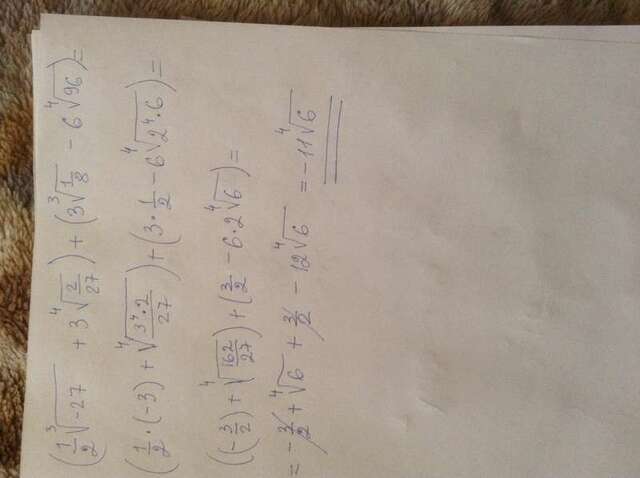 (1/2 ∛-27 + 3 ∜2/27) + (3 ∛1/8 - 6 ∜96) =
(1/2 · (-3) + ∜3⁴·2/27) + (3 · 1/2 - 6 ∜2⁴·6) =
((-3/2) + ∜162/27) + (3/2 - 6·2 ∜6) =
= -3/2 + ∜6 + 3/2 - 12 ∜6 = -11 ∜6